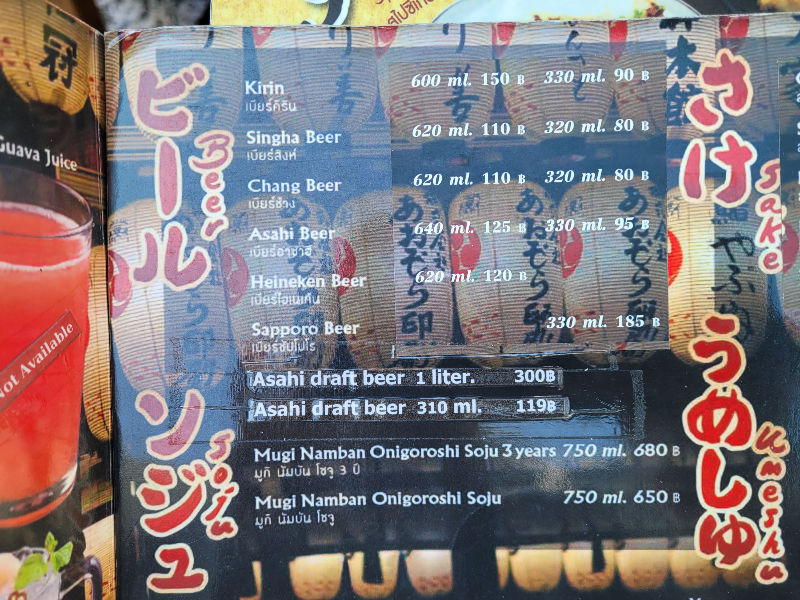 Guava Juice
Not Available
ビール
Beer
Kirin 600 ml. 150 ฿ 330 ml. 90 ฿
เบียร์คิริน
Singha Beer 620 ml. 110 ฿ 320 ml. 80 ฿
เบียร์สิงห์
Chang Beer 620 ml. 110 ฿ 320 ml. 80 ฿
เบียร์ช้าง
Asahi Beer 640 ml. 125 ฿ 330 ml. 95 ฿
เบียร์อาซาฮี
Heineken Beer 620 ml. 120 ฿
เบียร์ไฮเนเก้น
Sapporo Beer 330 ml. 185 ฿
เบียร์ซัปโปโร
Asahi draft beer 1 liter. 300฿
Asahi draft beer 310 ml. 119฿
ソジュ
Soju
Mugi Namban Onigoroshi Soju 3 years 750 ml. 680 ฿
มูกิ นัมบัน โซจู 3 ปี
Mugi Namban Onigoroshi Soju 750 ml. 650 ฿
มูกิ นัมบัน โซจู
さけ
Sake
うめしゅ
Umeshu
あおぞら印